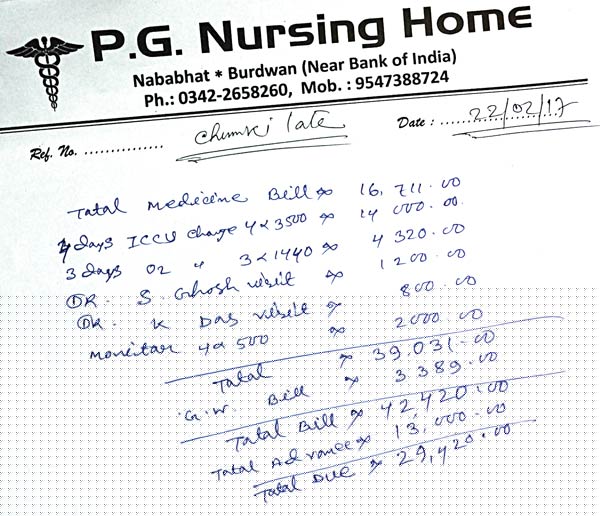 P.G. Nursing Home
Nababhat * Burdwan (Near Bank of India)
Ph.: 0342-2658260, Mob. : 9547388724
Ref. No. ............... Chumki late Date : 22/02/17
Tatal medicine Bill 16,711.00
4 days ICCU charge 4 x 3500 14 000.00
3 days O2 " 3 x 1440 4 320.00
DR. S. Ghosh visit 1200.00
DR. K Das visit 800.00
monitar 4 x 500 2000.00
Tatal 39,031.00
G.W. Bill 3389.00
Tatal Bill 42,420.00
Tatal Advance 13,000.00
Tatal Due 29,420.00